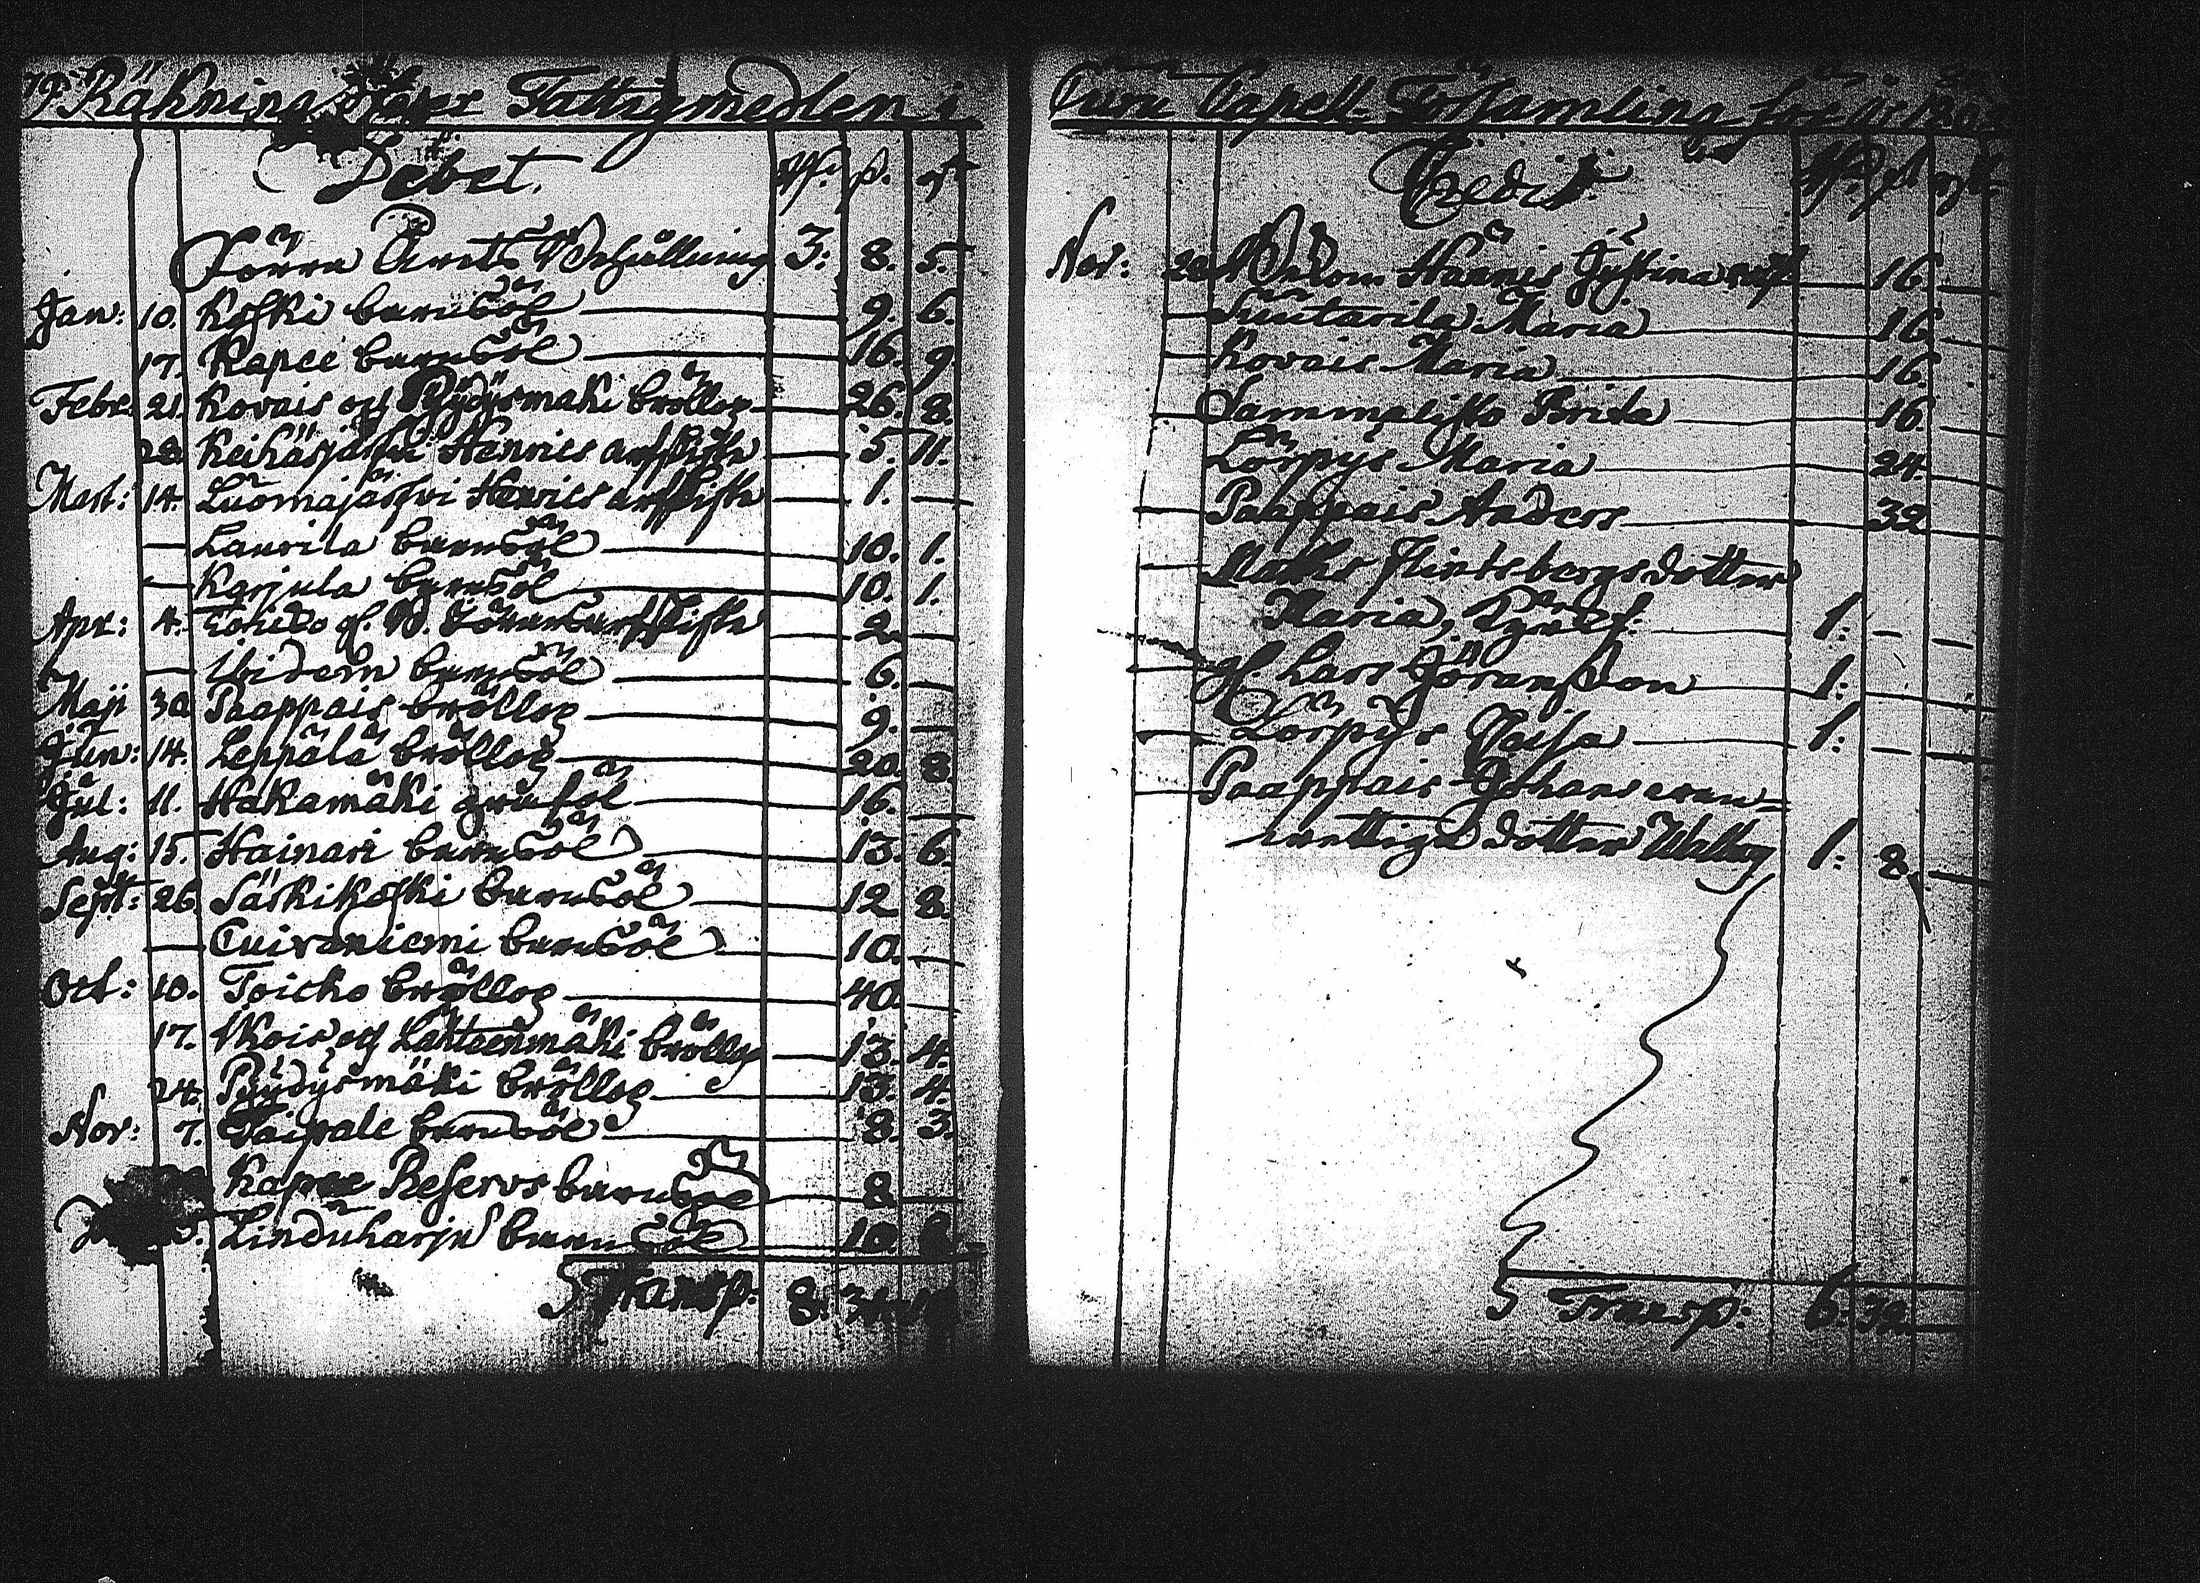 Räkning öfver Fattigmedlen i
Debet.
Rd. ß. rst
Förra Årets Behållning 3: 8. 5.
Jan: 10. Koski barnsöl 9. 6.
17. Kapee barnsöl 16. 9.
Febr: 21. Kovais och Pöydysmäki bröllop 26. 8.
28. Keihäsjärfvi Henrics arfskifte 5. 11.
Mart: 14. Luomajärfvi Henrics arfskifte 1. —
— Laurila barnsöl 10. 1.
— Karjula barnsöl 10. 1.
Apr: 4. gl. arfskifte 2. —
— Ibidem barnsöl 6. —
Maji 30. Paappais bröllop 9. —
Jun: 14. Leppälä bröllop 20. 8.
Jul: 11. Hakamäki graföl 16. —
Aug: 15. Hainari barnsöl 13. 6.
Sept: 26. Särkikoski barnsöl 12. 8.
— Cuivaniemi barnsöl 10. —
Oct: 10. Toicko bröllop 40. —
17. och Lähteenmäki bröllop 13. 4.
24. Pöydysmäki bröllop 13. 4.
Nov: 7. Taipale barnsöl 8. 3.
Kapee Reservs barnsöl 8. —
Linduharju barnsöl 10.
Transp: 8. 34.
Curu Capell-Församling för år
Credit.
Rd. ß rst.
Nov: Hannes Justina 16.
— Maria — 16.
— Kovais Maria — 16.
— Sammalisto Brita — 16. —
Lörpys Maria — 24. —
— Paappais Anders — 32 —
— Flintsbergs dotter
Maria, 1: — —
— gl. Lars Jöransson — 1: — —
— Lörpys — 1: — —
— Paappais Johans
dotter 1: 8. —
Transp: 6. 32. —